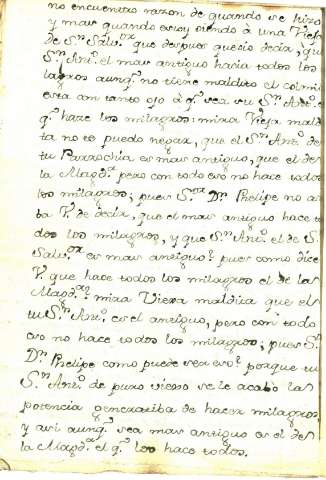 no encuentro razon de quando se hizo
y mas quando estoy oiendo à una Vieja
de Sn. Salv.or que despues que oio decir, que
Sn. Ant.o el mas antiguo hacia todos los
lagros aunq.e no tiene maldito el colmi
esta con tanto ojo à q.e sea su Sn. Ant.o el
q.e hace los milagros: mira Vieja mald
ta no te puedo negar, que el Sn. Ant.o de
tu Parrochia es mas antiguo, que el de
la Magd.a pero con todo eso no hace todos
los milagros; pues S.or Dn. Phelipe no a
ba V. de decir, que el mas antiguo hace to
dos los milagros, y que Sn. Ant.o el de S.
Salv.or es mas antiguo? pues como dice
V. que hace todos los milagros el de la
Magd.a? mira Viexa maldita que el
tu Sn. Ant.o es el antiguo, pero con todo
eso no hace todos los milagros; pues S.r
Dn. Phelipe como puede ser eso? porque tu
Sn. Ant.o de puro viexo se le acabò la
potencia generatiba de hacer milagros,
y asi aunq.e sea mas antiguo es el de
la Magd.a el q.e los hace todos.